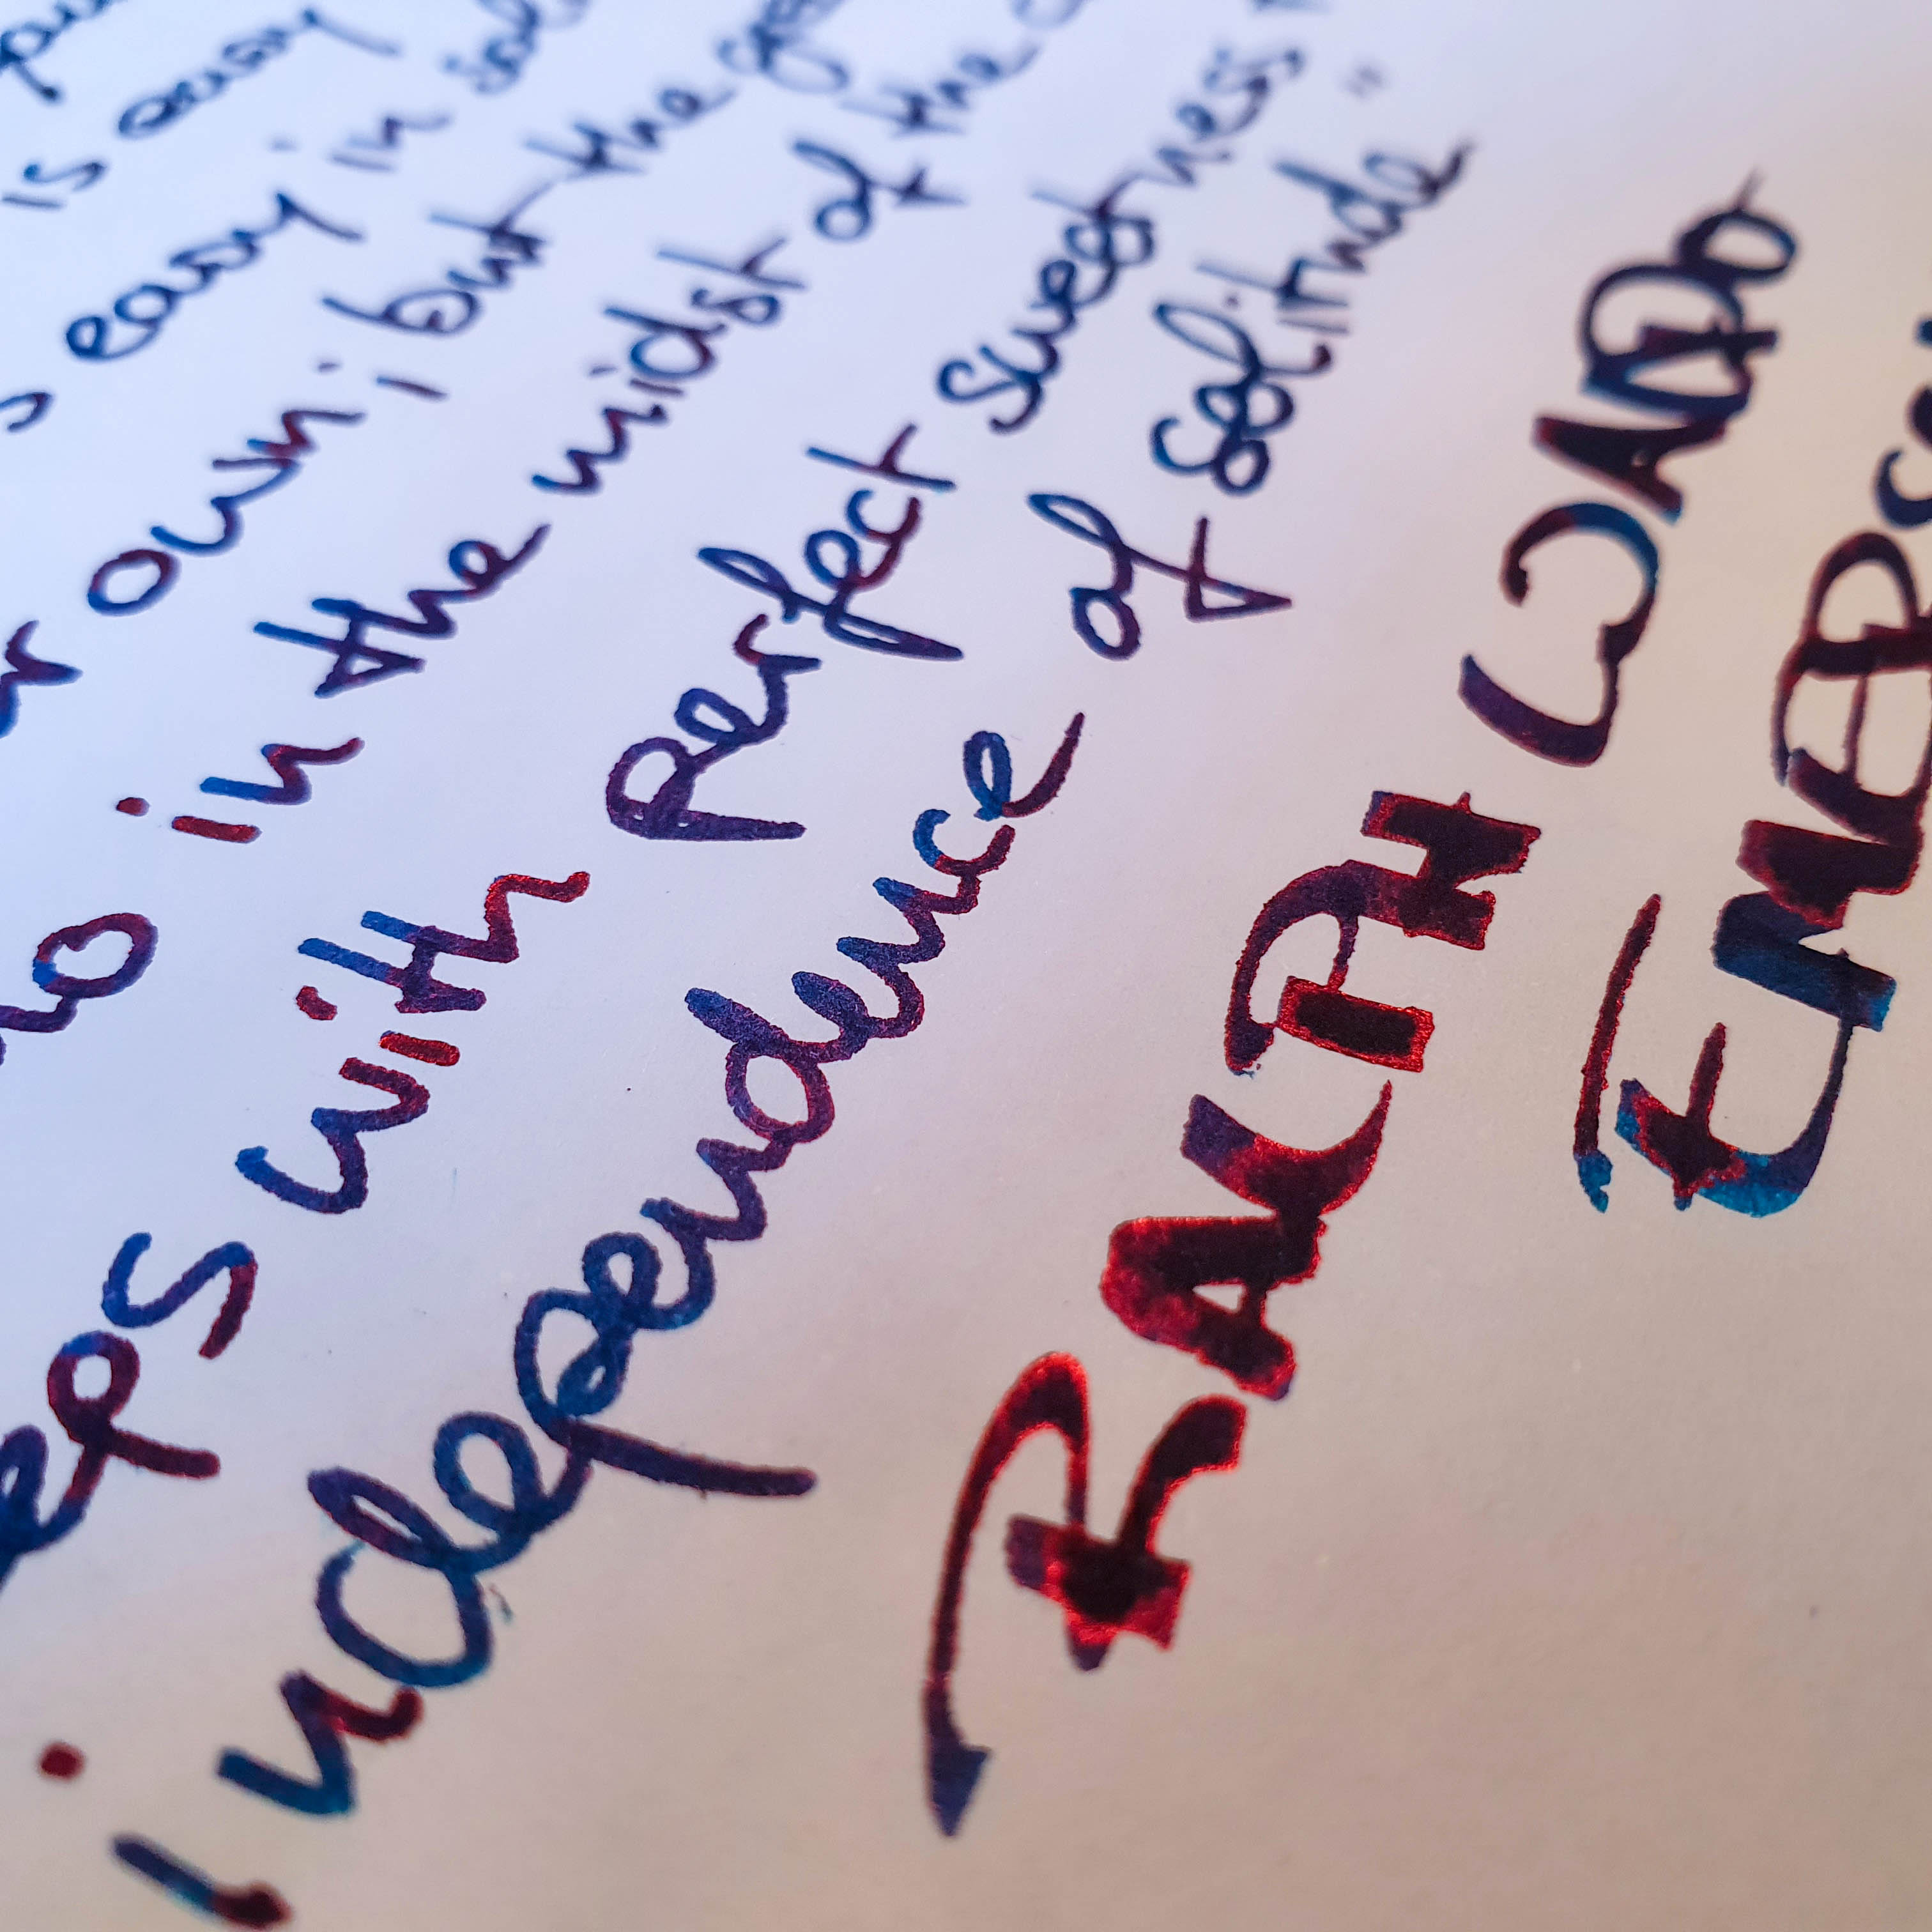 is easy
is easy in
own; but the
who in the midst of the
eps with perfect sweetness
independence of solitude"
RALPH WALDO
EMERS